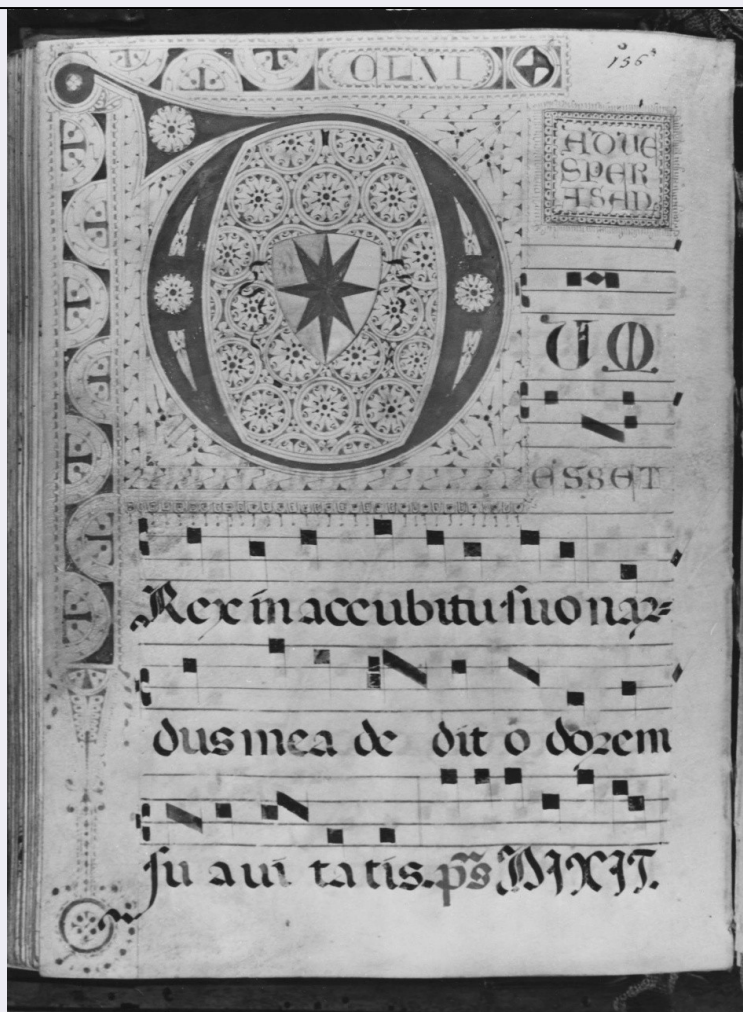 136
AD UE
SPER
AS AN.
D UM
ESSET
Rex in accubitu suo nar=
dus mea de dit o dorem
su a ui ta tis. ps DIXIT.